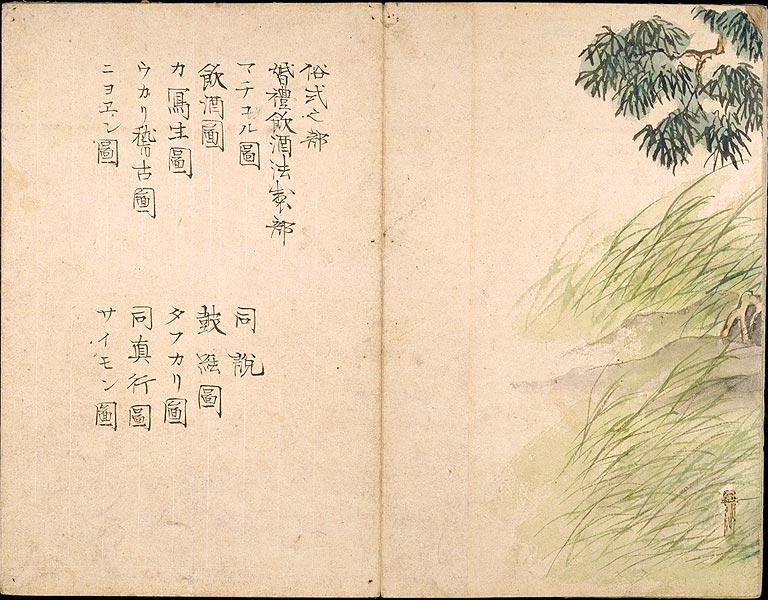 俗式之部
婚禮飲酒法部
マチユル圖 同説
飲酒圖 皷圖
カ寫生圖 タフカリ圖
ウカリ稽古圖 同真行圖
ニヨヱン圖 サイモン圖